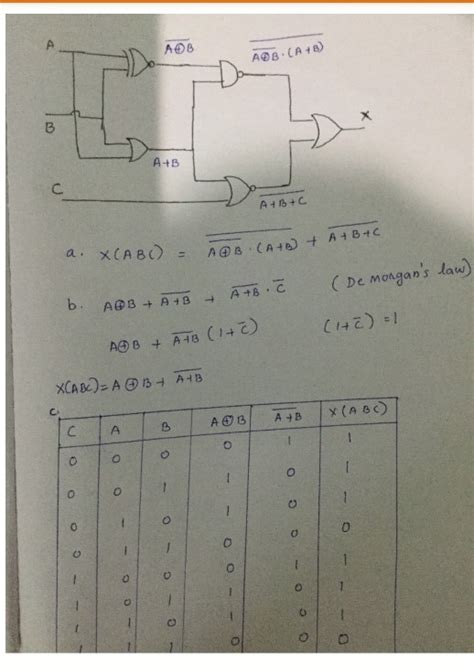 A
A̅⊕̅B̅
A̅⊕̅B̅ · (A+B) (overlined)
X
B
A+B
C
A̅+̅B̅+̅C̅
a. X(ABC) = \overline{\overline{A⊕B} · (A+B)} + \overline{A+B+C}
b. A⊕B + \overline{A+B} + \overline{A+B} · \overline{C} (De morgan's law)
A⊕B + \overline{A+B} (1+\overline{C}) (1+\overline{C}) = 1
X(ABC) = A⊕B + \overline{A+B}
c.
C A B A⊕B \overline{A+B} X(ABC)
0 0 0 0 1 1
0 0 1 1 0 1
0 1 0 1 0 1
0 1 1 0 0 0
1 0 0 0 1 1
1 0 1 1 0 1
1 1 0 1 0 1
1 1 1 0 0 0